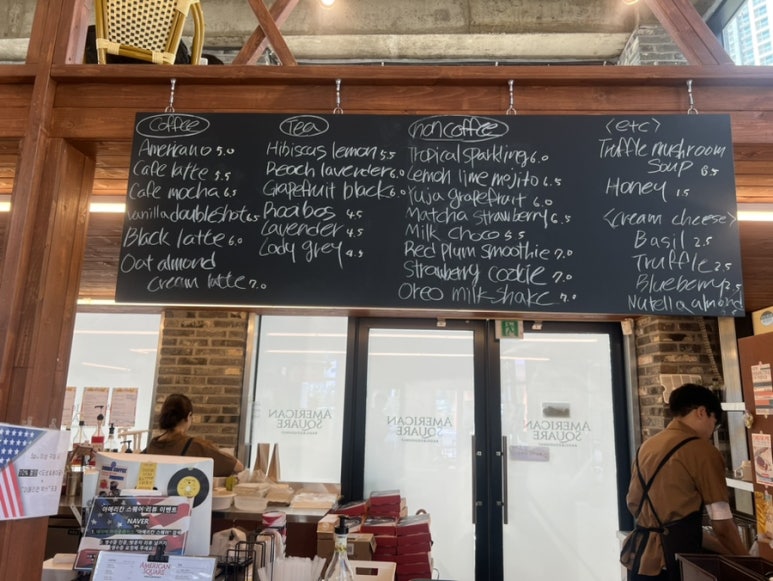 Coffee
Americano 5.0
Cafe latte 5.5
Cafe mocha 6.5
Vanilla doubleshot 6.5
Black latte 6.0
Oat almond
cream latte 7.0
Tea
Hibiscus lemon 5.5
Peach lavender 6.0
Grapefruit black 6.0
Rooibos 4.5
Lavender 4.5
Lady grey 4.5
non coffee
Tropical sparkling 6.0
Lemon lime mejito 6.5
Yuja grapefruit 6.0
Matcha strawberry 6.5
Milk choco 5.5
Red plum smoothie 7.0
Strawberry cookie 7.0
Oreo milk shake 7.0
<etc>
Truffle mushroom
Soup 6.5
Honey 1.5
<cream cheese>
Basil 2.5
Truffle 2.5
Blueberry 2.5
Nutella almond
AMERICAN
SQUARE
AMERICAN
SQUARE
AMERICAN
SQUARE
아메리칸 스퀘어 리뷰 이벤트
NAVER
'아메리칸 스퀘어'
AMERICAN
SQUARE